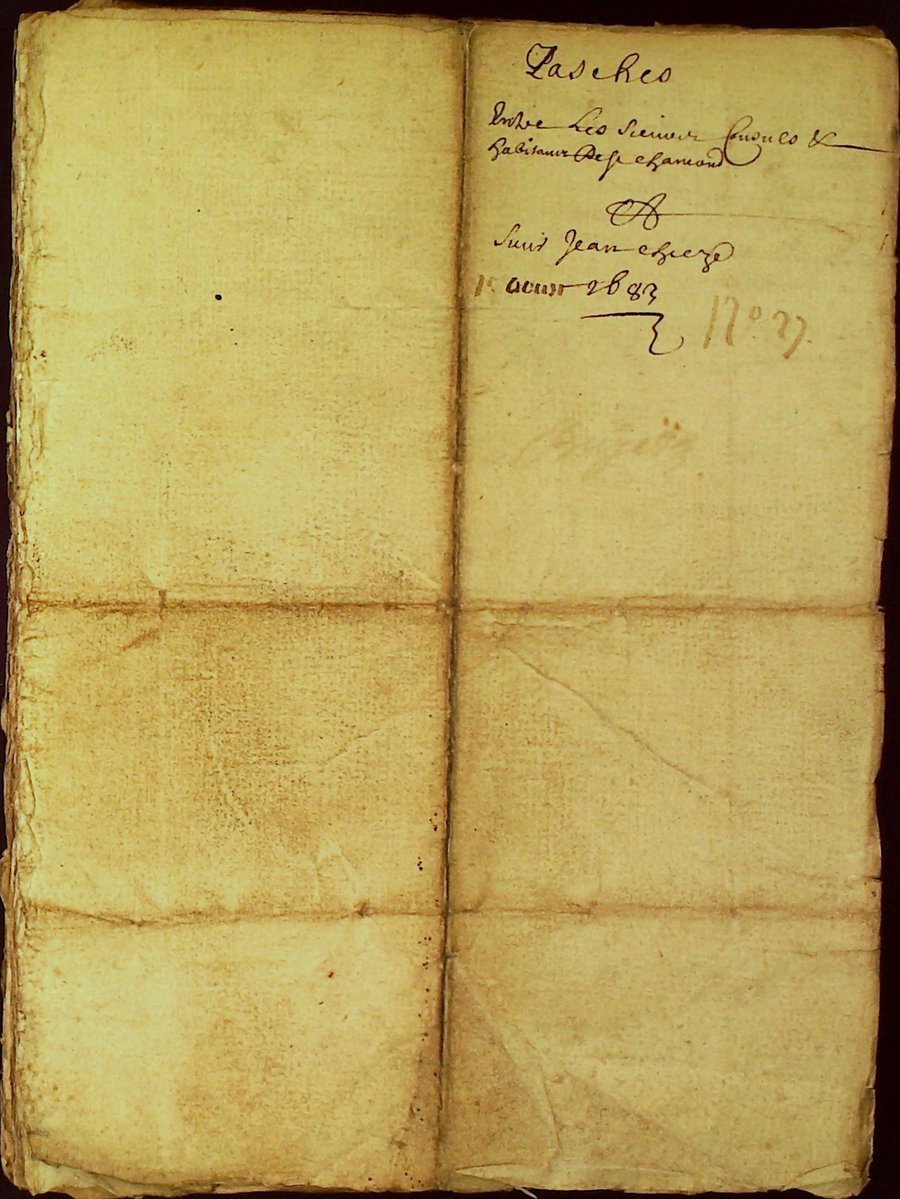 Pasches
Entre Les sieurs Consuls &
habitans de st chamond
Et
Sieur Jean chieze
1e aoust 1683
N° 27.